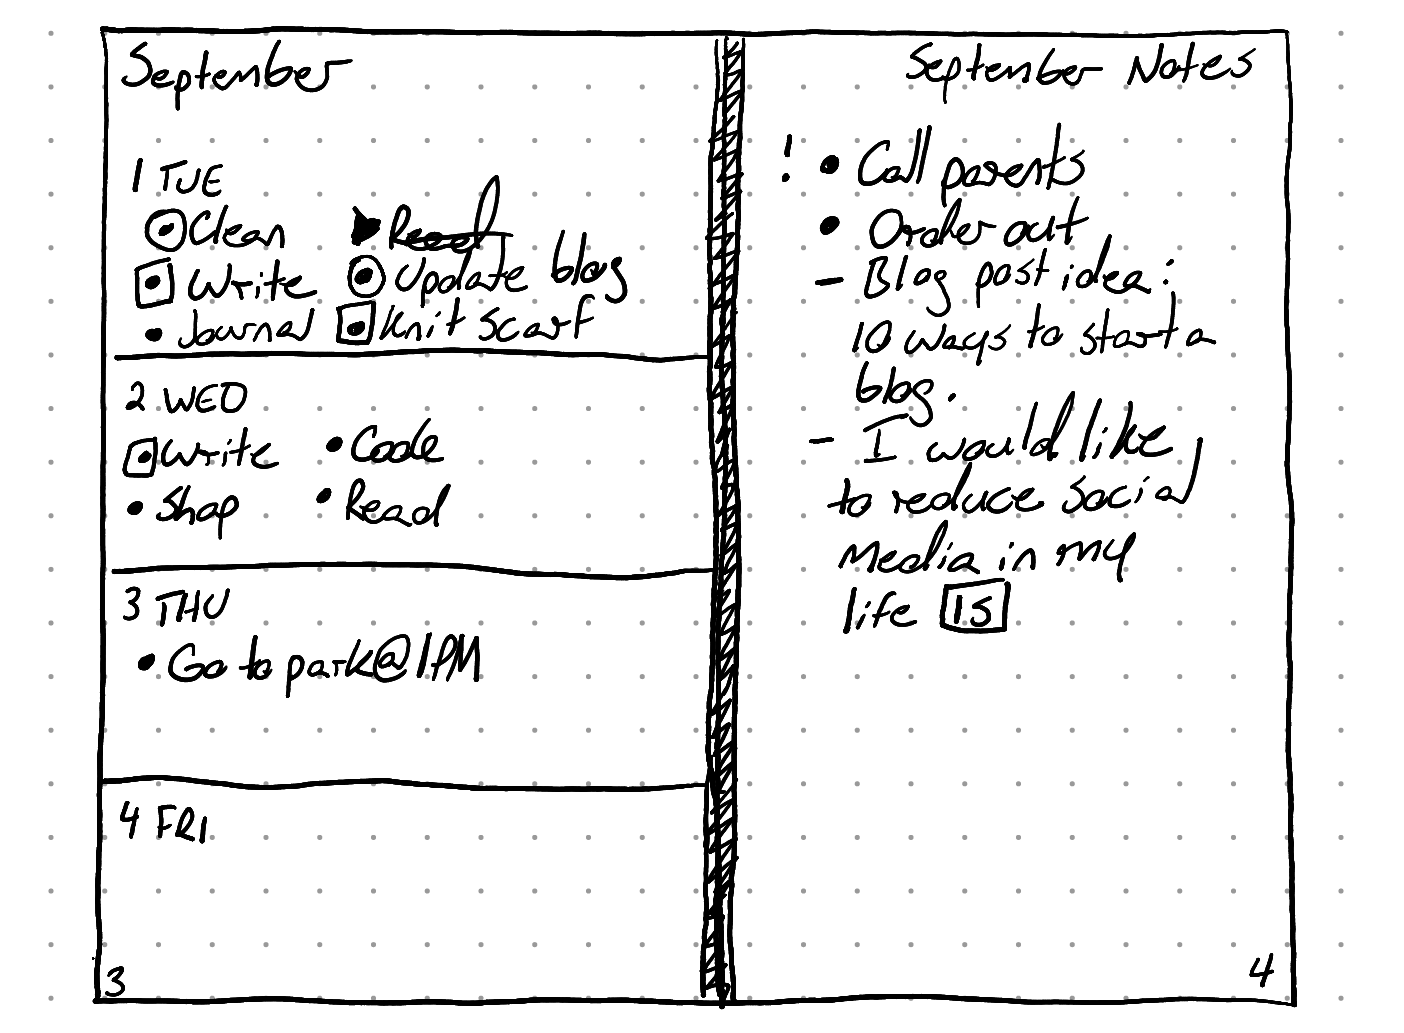 September
1 TUE
Clean Read
Write Update blog
• Journal Knit scarf
2 WED
Write • Code
• Shop • Read
3 THU
• Go to park @ 1PM
4 FRI
3
September Notes
! • Call parents
• Order out
- Blog post idea:
10 ways to start a
blog.
- I would like
to reduce social
media in my
life 15
4